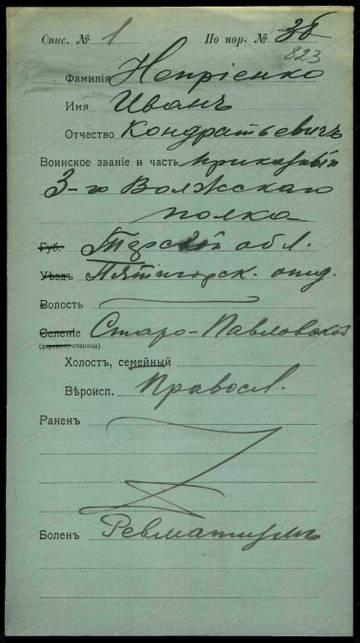 Спис. № 1 По пор. № 36
823
Фамилія Непріенко
Имя Иванъ
Отчество Кондратьевичъ
Воинское званіе и часть приказный
3-го Волжскаго
полка
Губ. Терской обл.
Уѣздъ Пятигорск. отд.
Волость
Селеніе Старо-Павловской
(деревня, станица)
Холостъ, семейный
Вѣроисп. Правосл.
Раненъ
Боленъ Ревматизмъ